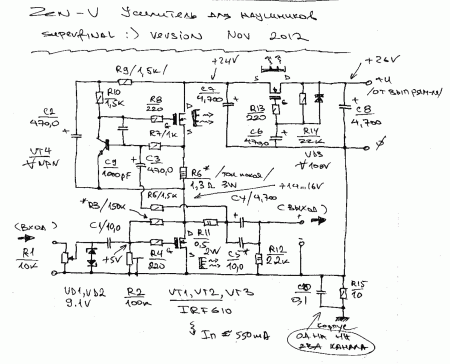 ZEN-V Усилитель для наушников
superfinal :) version Nov 2012
+24V
+26V
R9/1,5k
+U
/от выпрям-ля/
R10
1,5k
C7
4,700
S
D
C2
470,0
R8
220
G
D
S
R13
220
G
C8
4,700
R7/1k
C6
470,0
R14
22k
VT4
∀NPN
C9
1000pF
C3
470,0
VD3
∀ 100V
R6* /ток покоя/
1,3Ω 3W
+14...16V
R5/1,5k
C4/4,700
*R3/150k
(выход)
(вход)
C1/10,0
D
R11
0,5
G
R1
10k
+5V
R4
220
S
2W
C5*
10,0
R12
2,2k
VD1,VD2
9.1V
R2
100k
VT1, VT2, VT3
IRF610
0,1
R15
10
корпус
In ≅ 550mA
два канала